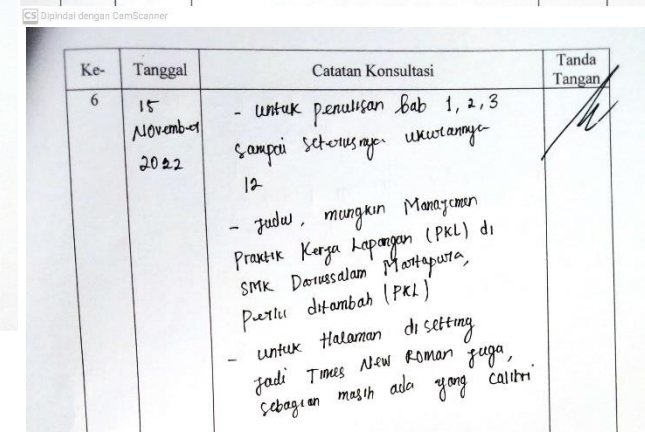 CS Dipindai dengan CamScanner
Ke- Tanggal Catatan Konsultasi Tanda Tangan
6 15 November 2022
- untuk penulisan bab 1, 2, 3
sampai seterusnya ukurannya
12
- Judul, mungkin Manajemen
Praktik Kerja Lapangan (PKL) di
SMK Darussalam Martapura,
Perlu ditambah (PKL)
- untuk Halaman di setting
jadi Times New Roman juga,
sebagian masih ada yang calibri